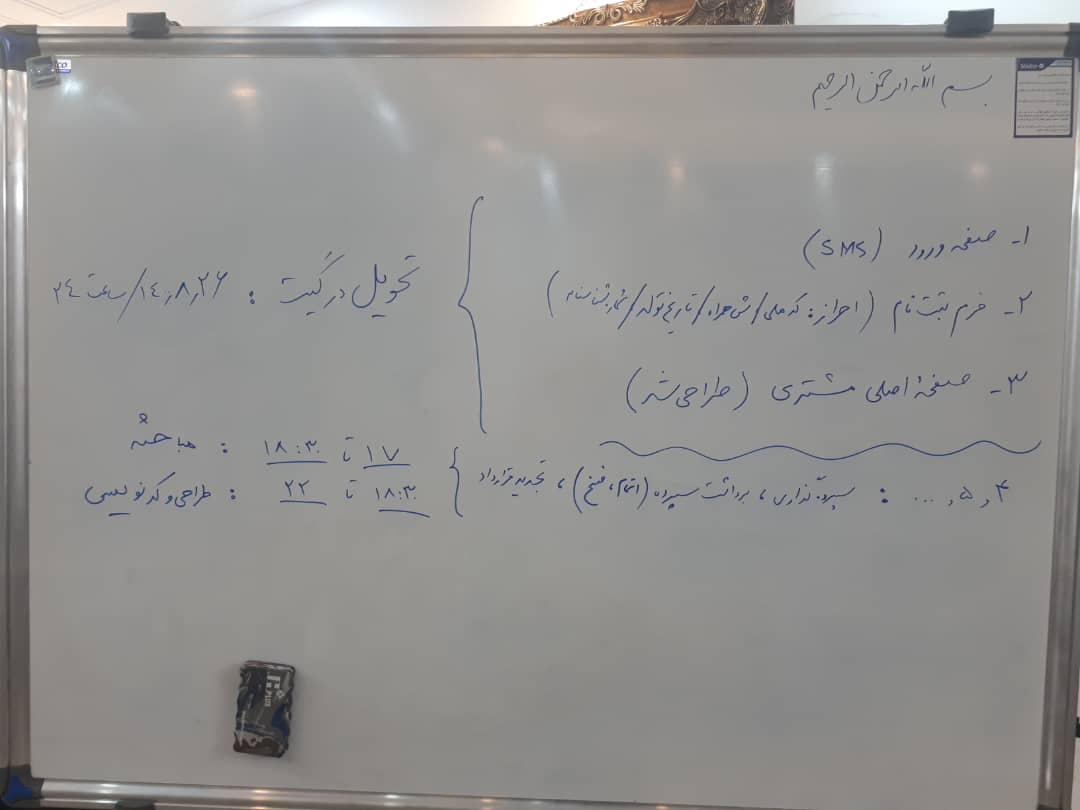 بسم الله الرحمن الرحیم
۱- صفحه ورود (SMS)
۲- فرم ثبت نام (احراز: کد ملی/ش همراه/تاریخ تولد/شمار شناسنامه)
۳- صفحهٔ اصلی مشتری (طراحی شد)
تحویل در گیت : ۱۴۰۸٫۲۶/ساعت ۲۴
۴، ۵، ... : سپرده‌گذاری، برداشت سپرده (اتمام، فسخ)، تجدید قرارداد
۱۷ تا ۱۸:۳۰ : مباحثه
۱۸:۳۰ تا ۲۲ : طراحی و کدنویسی
PLUS